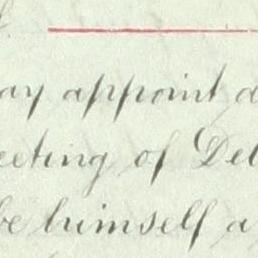 ay appoint a
eeting of Del
be himself a